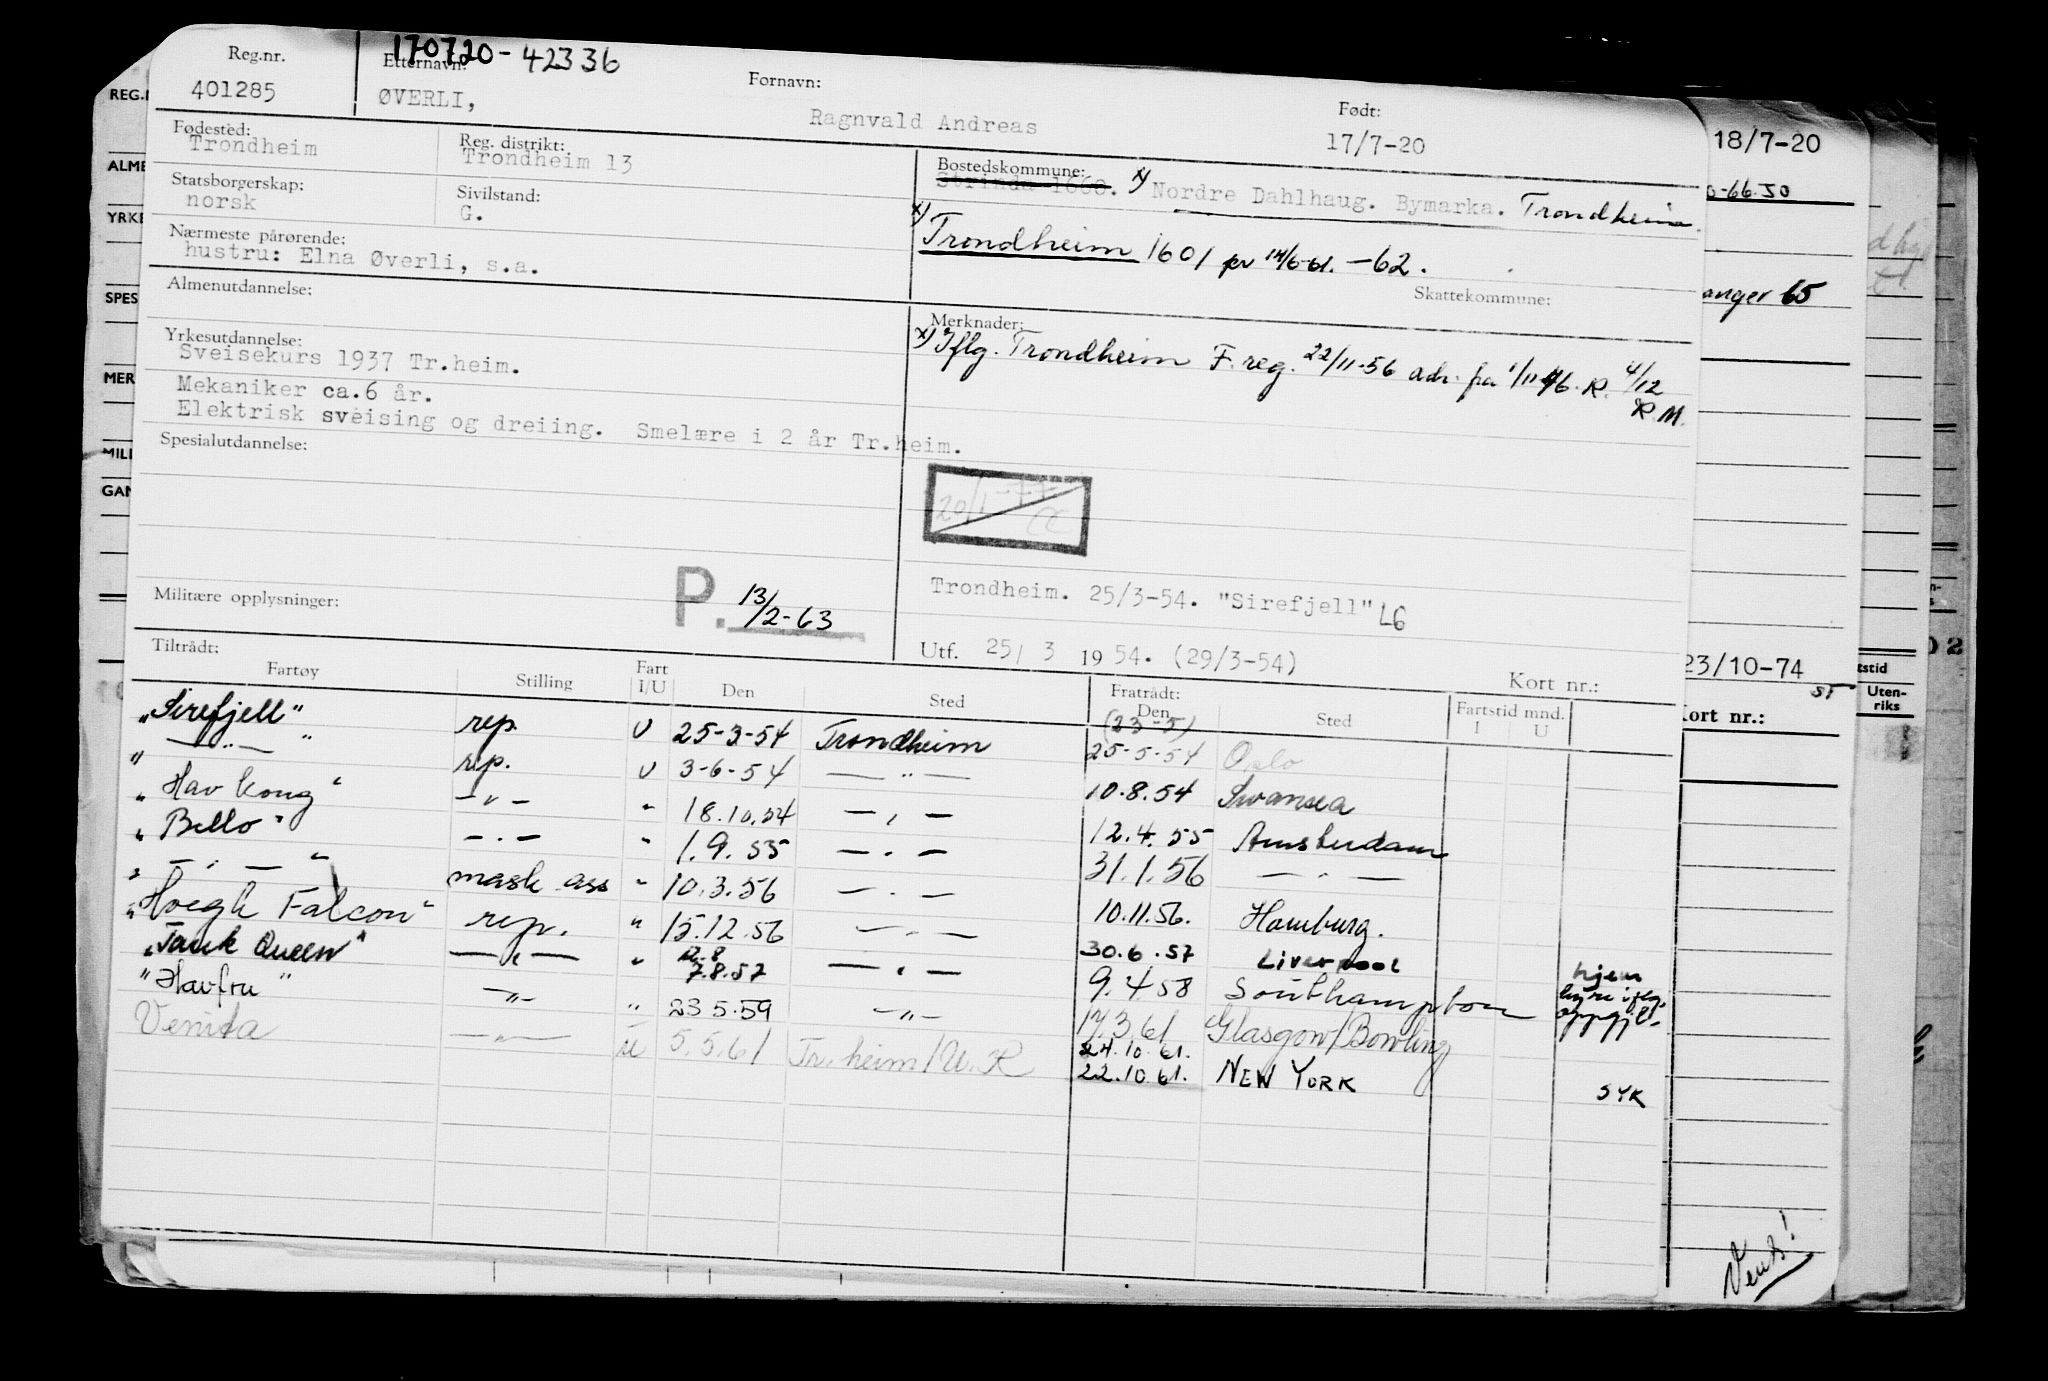 170720-42336
Reg.nr. Etternavn: Fornavn: Født:
401285 ØVERLI, Ragnvald Andreas 17/7-20
Fødested: Reg. distrikt: Bostedskommune:
Trondheim Trondheim 13 Strinda 1660. x) Nordre Dahlhaug. Bymarka. Trondheim.
Statsborgerskap: Sivilstand:
norsk G. x) Trondheim 1601 pr 14/6-61. -62.
Nærmeste pårørende:
hustru: Elna Øverli, s.a.
Skattekommune:
Almenutdannelse:
Merknader:
x) Iflg. Trondheim F.reg. 22/11-56 adr. fra 1/11-46. R. 4/12
R.M.
Yrkesutdannelse:
Sveisekurs 1937 Tr.heim.
Mekaniker ca.6 år.
Elektrisk sveising og dreiing. Smelære i 2 år Tr.heim.
Spesialutdannelse:
20/1-77
CC
Militære opplysninger: P. 13/2-63
Trondheim. 25/3-54. "Sirefjell" LG
Utf. 25/ 3 1954. (29/3-54)
Tiltrådt: Fratrådt: Kort nr.:
Fartøy Stilling Fart I/U Den Sted Den Sted Fartstid mnd. I U
"Sirefjell" rep. U 25-3-54 Trondheim (23-5) 25-5-54 Oslo
" — " — " rep. U 3-6-54 — " — 10.8.54 Swansea
"Havkong" — " — " 18.10.54 — " — 12.4.55 Amsterdam
"Bello" — " — " 1.9.55 — " — 31.1.56 — " —
" — " — " mask ass " 10.3.56 — " — 10.11.56. Hamburg.
"Höegh Falcon" rep. " 15.12.56 — " — 30.6.57 Liverpool
"Tank Queen" — " — " 7.8.57 — " — 9.4.58 Southampton hjem hyre iflg. oppgj.
"Havfru" — " — " 23 5.59 — " — 17.3.61 Glasgow/Bowling
Venita — " — U 5.5.61 Tr.heim/U.R 24.10.61.
22.10.61. NEW YORK SYK
REG.
ALME
YRKE
SPES
MER
MILI
GAN
18/7-20
0-66.50
anger 65
23/10-74
ST
Kort nr.:
tstid
Uten-
riks
02
Vent!